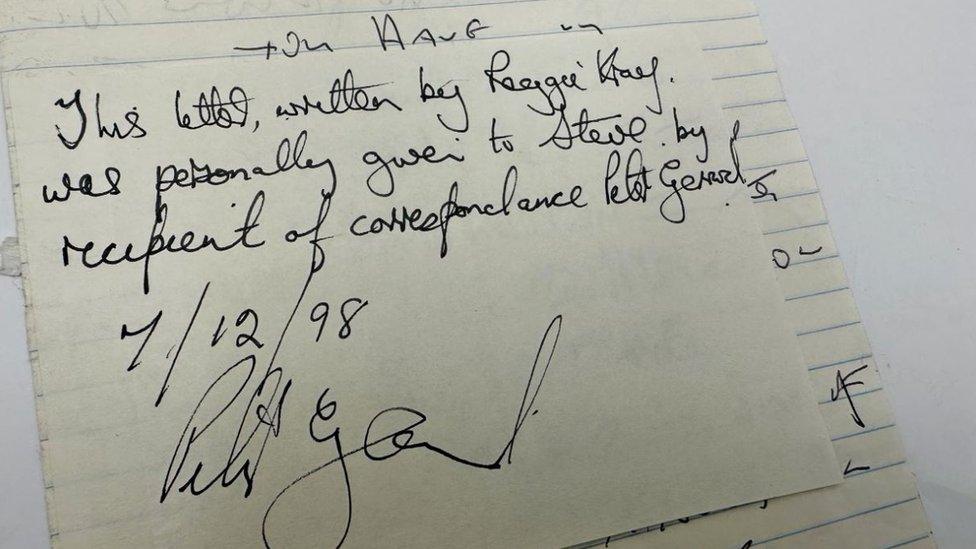 HAVE
This letter, written by Reggie Kray.
was personally given to Steve by
recipient of correspondance Peter Gerrard.
7/12/98
Peter Gerrard